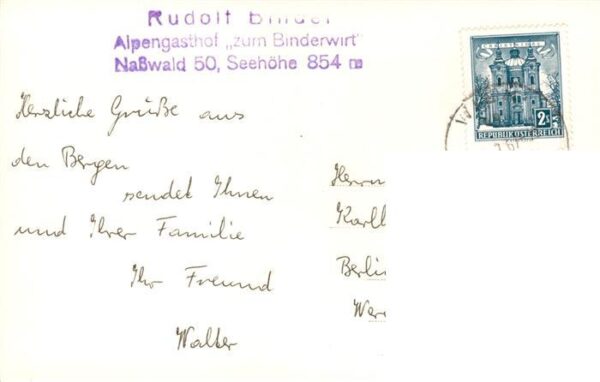 Rudolf Binder
Alpengasthof „zum Binderwirt"
Naßwald 50, Seehöhe 854 m
CHRISTKINDL
2 S
REPUBLIK ÖSTERREICH
Herzliche Grüße aus
den Bergen
sendet Ihnen
und Ihrer Familie
Ihr Freund
Walter
Herrn
Karl
Berlin